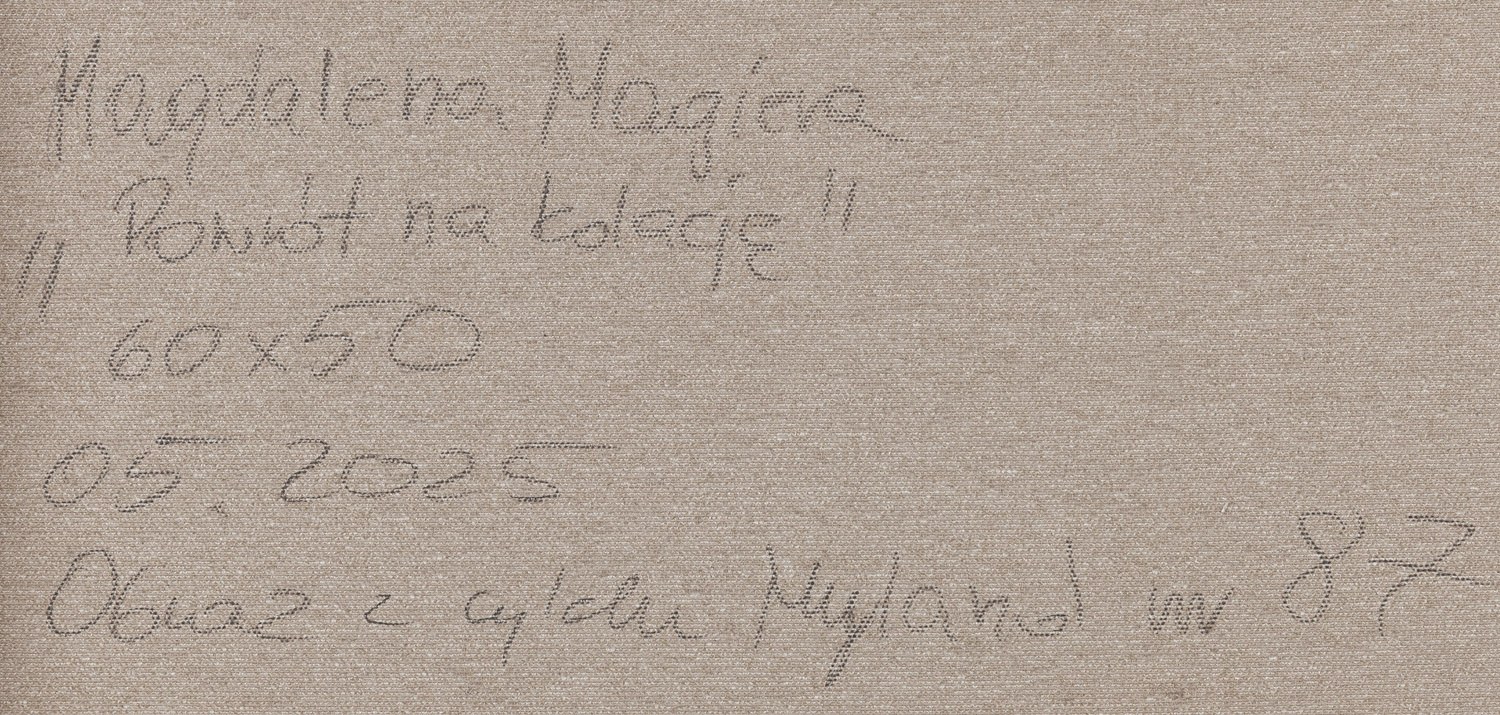 Magdalena Magiera
"Powrót na kolację"
60x50
05.2025
Obraz z cyklu Myland nr 87